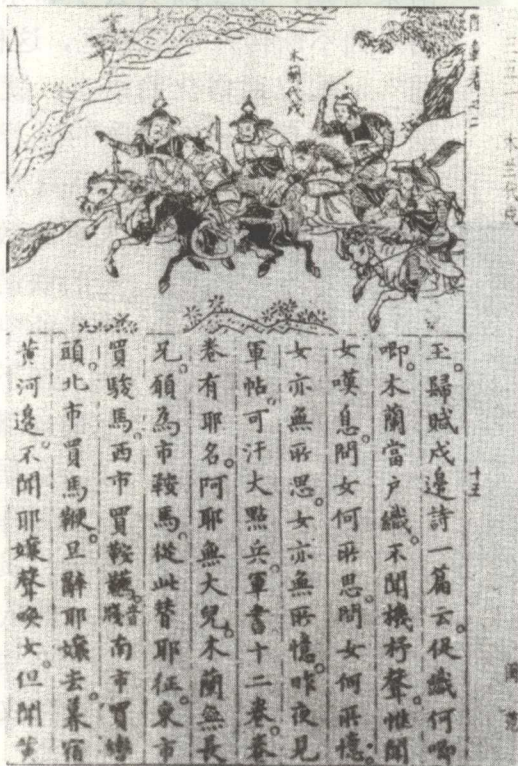 木蘭代戍
十五
玉。歸賦戍邊詩一篇云。促織何唧
唧。木蘭當户織。不聞機杼聲。惟聞
女嘆息。問女何所思。問女何所憶。
女亦無所思。女亦無所憶。昨夜見
軍帖。可汗大點兵。軍書十二卷。卷
卷有耶名。阿耶無大兒。木蘭無長
兄。願為市鞍馬。從此替耶征。東市
買駿馬。西市買鞍韉。音牋南市買轡
頭。北市買馬鞭。旦辭耶孃去。暮宿
黃河邊。不聞耶孃聲喚女。但聞黃